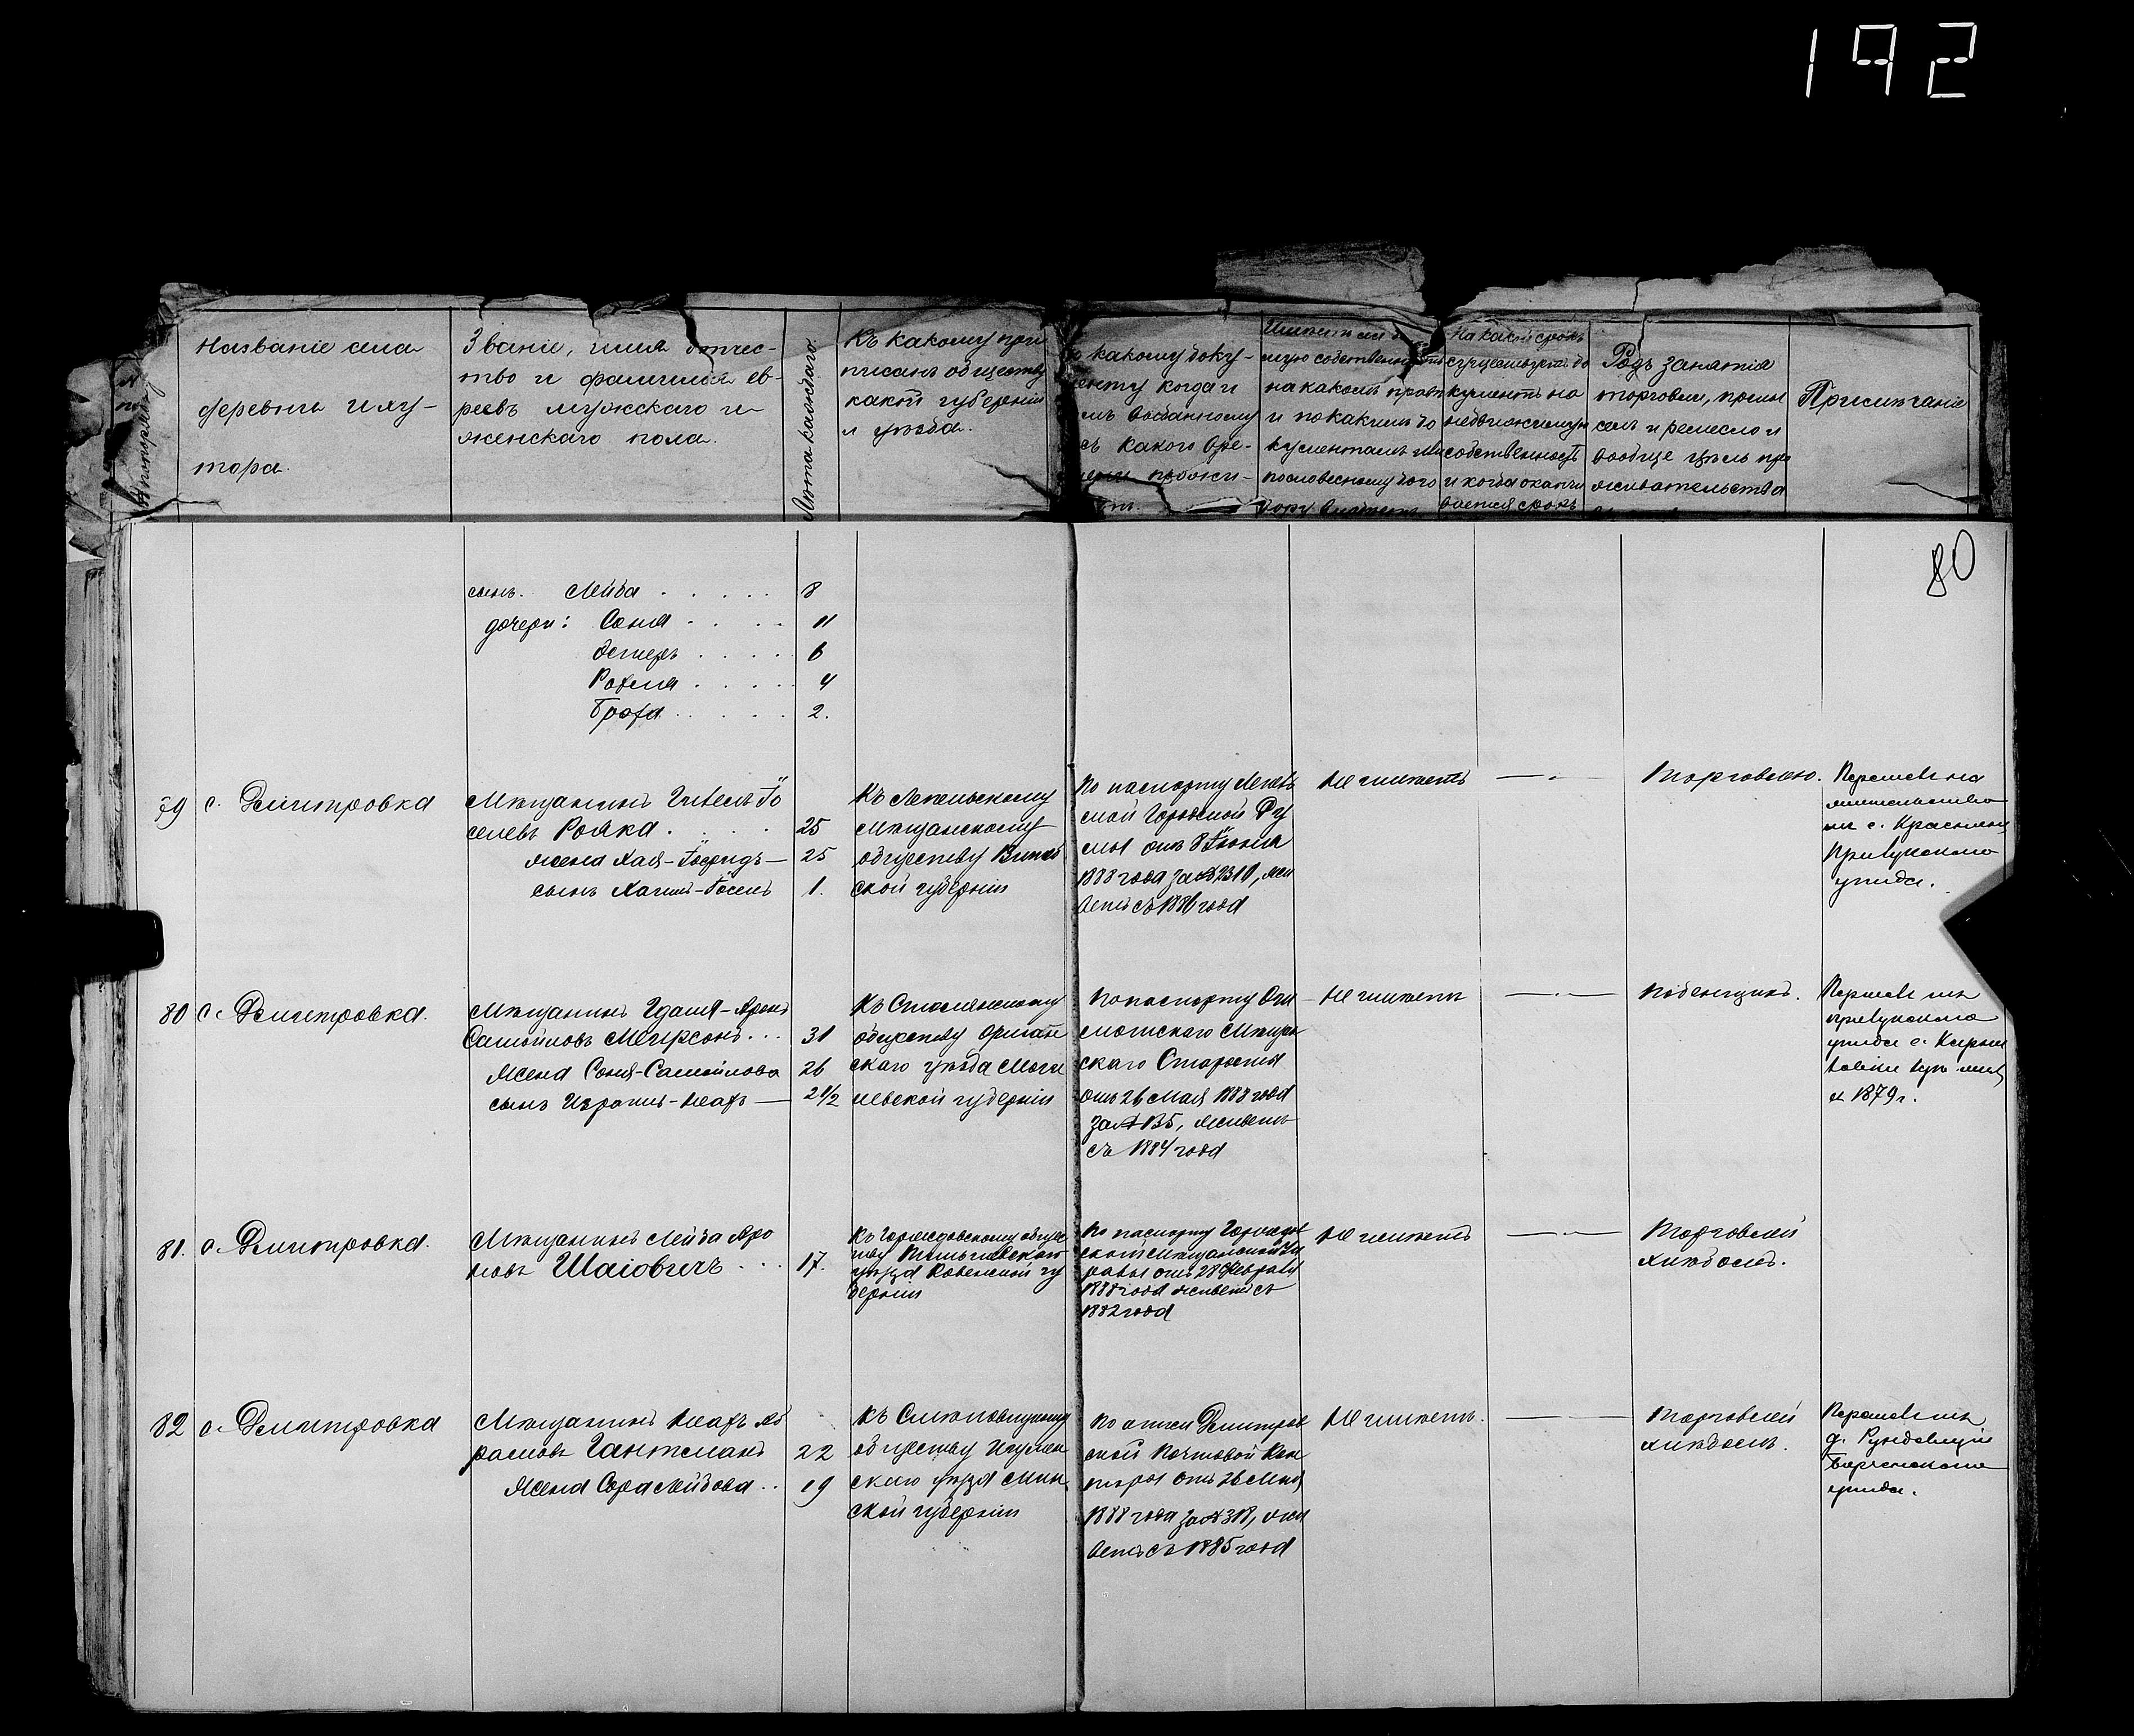 192
Названіе села
деревни и ху-
тора.
Званіе, имя отчес-
тво и фамилия ев-
реевъ мужскаго и
женскаго пола.
Лѣта каждаго
Къ какому при
писанъ обществу
какой губерніи
и уѣзда.
какому доку-
менту когда и
кѣмъ выданному
съ какого вре-
мени прожи-
Имѣетъ ли
мую собственность
на какомъ правѣ
и по какимъ до
кументамъ
пословесному дого
вору
На какой срокъ
существуетъ до
кументъ на
недвижимую
собственность
и когда оканчи
вается срокъ
Родъ занятія
торговли, промы
селъ и ремесло и
вообще цѣль про
живательства
Примѣчаніе
80
сынъ. Лейба 8
дочери: Соня 11
Эстеръ 6
Рохля 4
Броха 2.
79 с. Дмитровка
Мѣщанинъ
селевъ 25
жена Хая- 25
сынъ 1.
Къ Лепельскому
мѣщанскому
обществу Витеб
ской губерніи
По паспорту Лепель
ской Городской Ду
мы отъ 8 Іюня
1888 года за № 2310, жи
ветъ съ 1886 года
Не имѣетъ
Торговлею.
уѣзда.
80 с. Дмитровка.
Мѣщанинъ Гдаля-Аронъ
Самойловъ Меирсонъ 31
Жена Соня-Самойлова 26
сынъ Израиль- 2 1/2
Къ Смолянскому
обществу Оршан
скаго уѣзда Моги
левской губерніи
По паспорту
Мѣщан
скаго Старосты
отъ 26 Мая 1888 года
за № 135, живетъ
съ 1884 года
Не имѣетъ
поденщикъ.
уѣзда с.
1879 г.
81. с. Дмитровка.
Мѣщанинъ Лейба Аро
новъ Шаіовичъ 17.
Къ Горждовскому общес
тву Тельшевскаго
уѣзда Ковенской гу
берніи
По паспорту Горждов
ской Мѣщанской Уп
равы отъ 28 Февраля
1888 года живетъ съ
1882 года
Не имѣетъ
Торговлей
хлѣбомъ.
82 с. Дмитровка
Мѣщанинъ Аб
рамовъ Гантманъ 22
Жена Сора Лейбова 19
Къ
обществу Игумен
скаго уѣзда Мин
ской губерніи
Дмитров
ской Почтовой Кон
торы отъ 26 Мая
1888 года за № 318, жи
ветъ съ 1885 года
Не имѣетъ.
Торговлей
хлѣбомъ.
уѣзда.